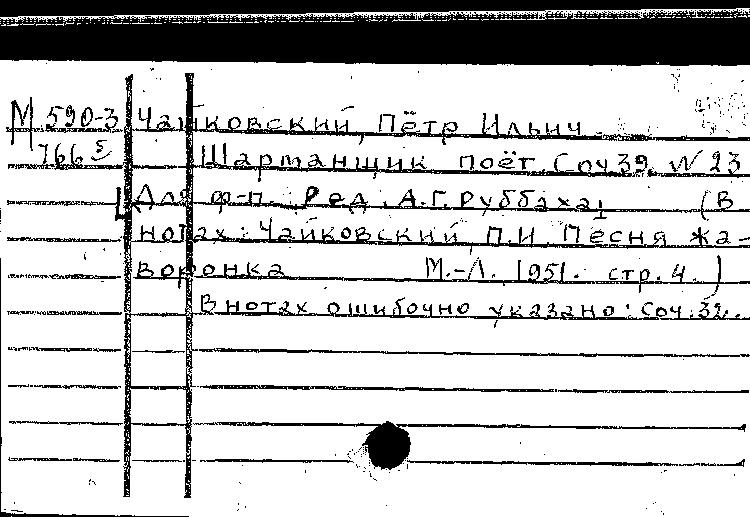 М 590-3 Чайковский, Пётр Ильич
766 Шарманщик поёт. Соч 39. N 23
[Для ф-п. Ред. А.Г. Руббаха] (В
нотах: Чайковский, П.И. Песня жа-
воронка М.-Л. 1951. стр. 4.)
В нотах ошибочно указано: Соч. 32.